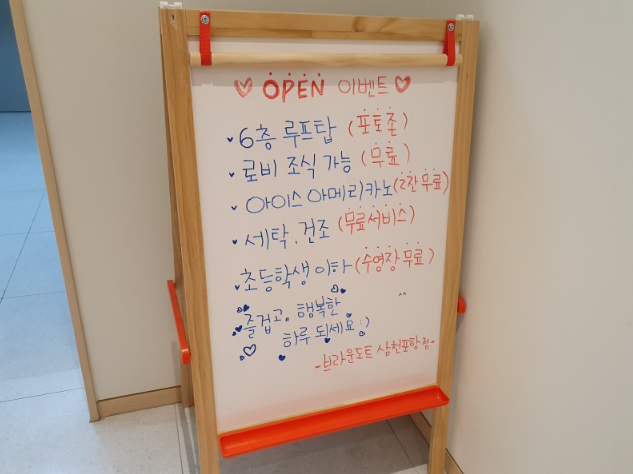 ♡ OPEN 이벤트 ♡
6층 루프탑 (포토존)
로비 조식 가능 (무료)
아이스 아메리카노 (2잔 무료)
세탁. 건조 (무료서비스)
초등학생 이하 (수영장 무료)
즐겁고, 행복한 ^^
하루 되세요 :)
-브라운도트 삼천포항점-